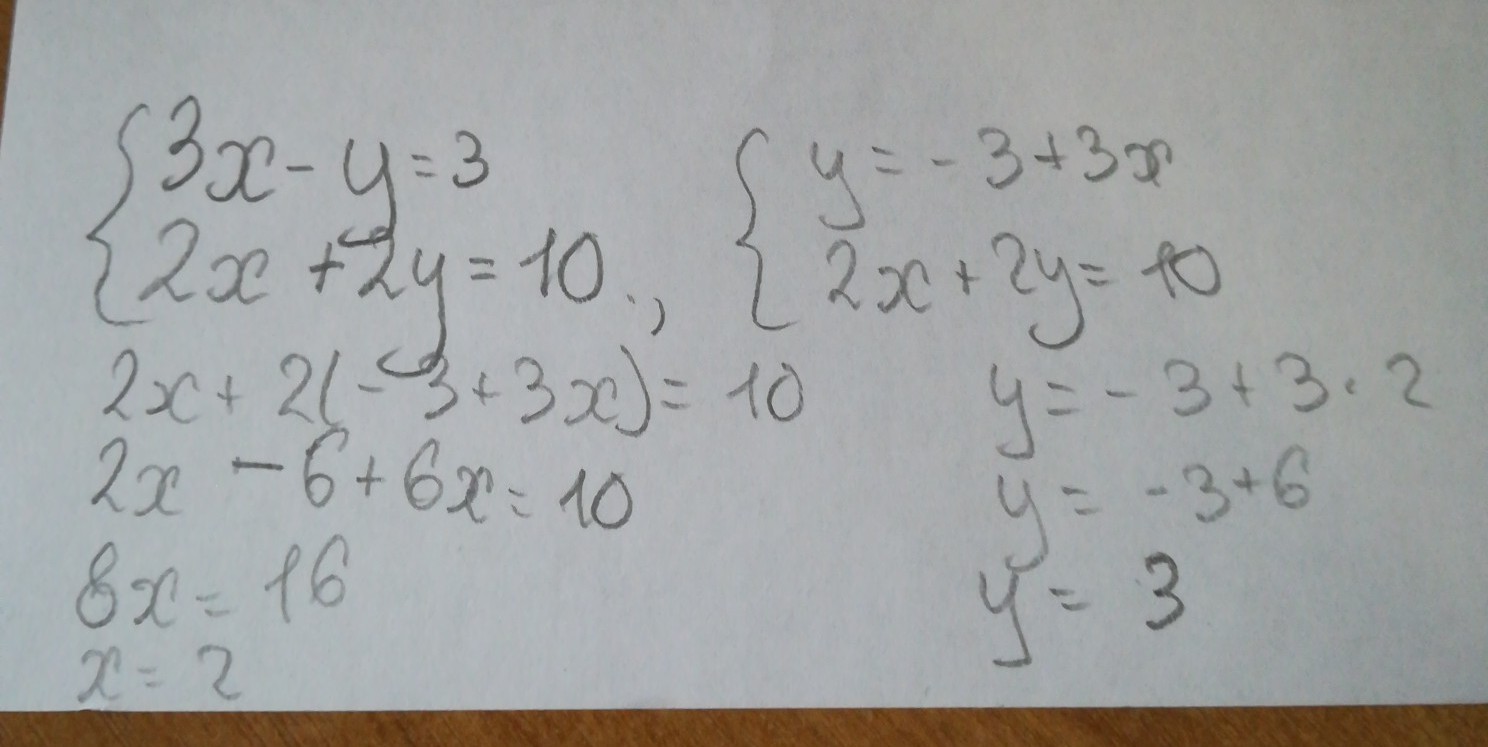 3x - y = 3
2x + 2y = 10.,
y = -3 + 3x
2x + 2y = 10
2x + 2(-3 + 3x) = 10
2x - 6 + 6x = 10
8x = 16
x = 2
y = -3 + 3 · 2
y = -3 + 6
y = 3